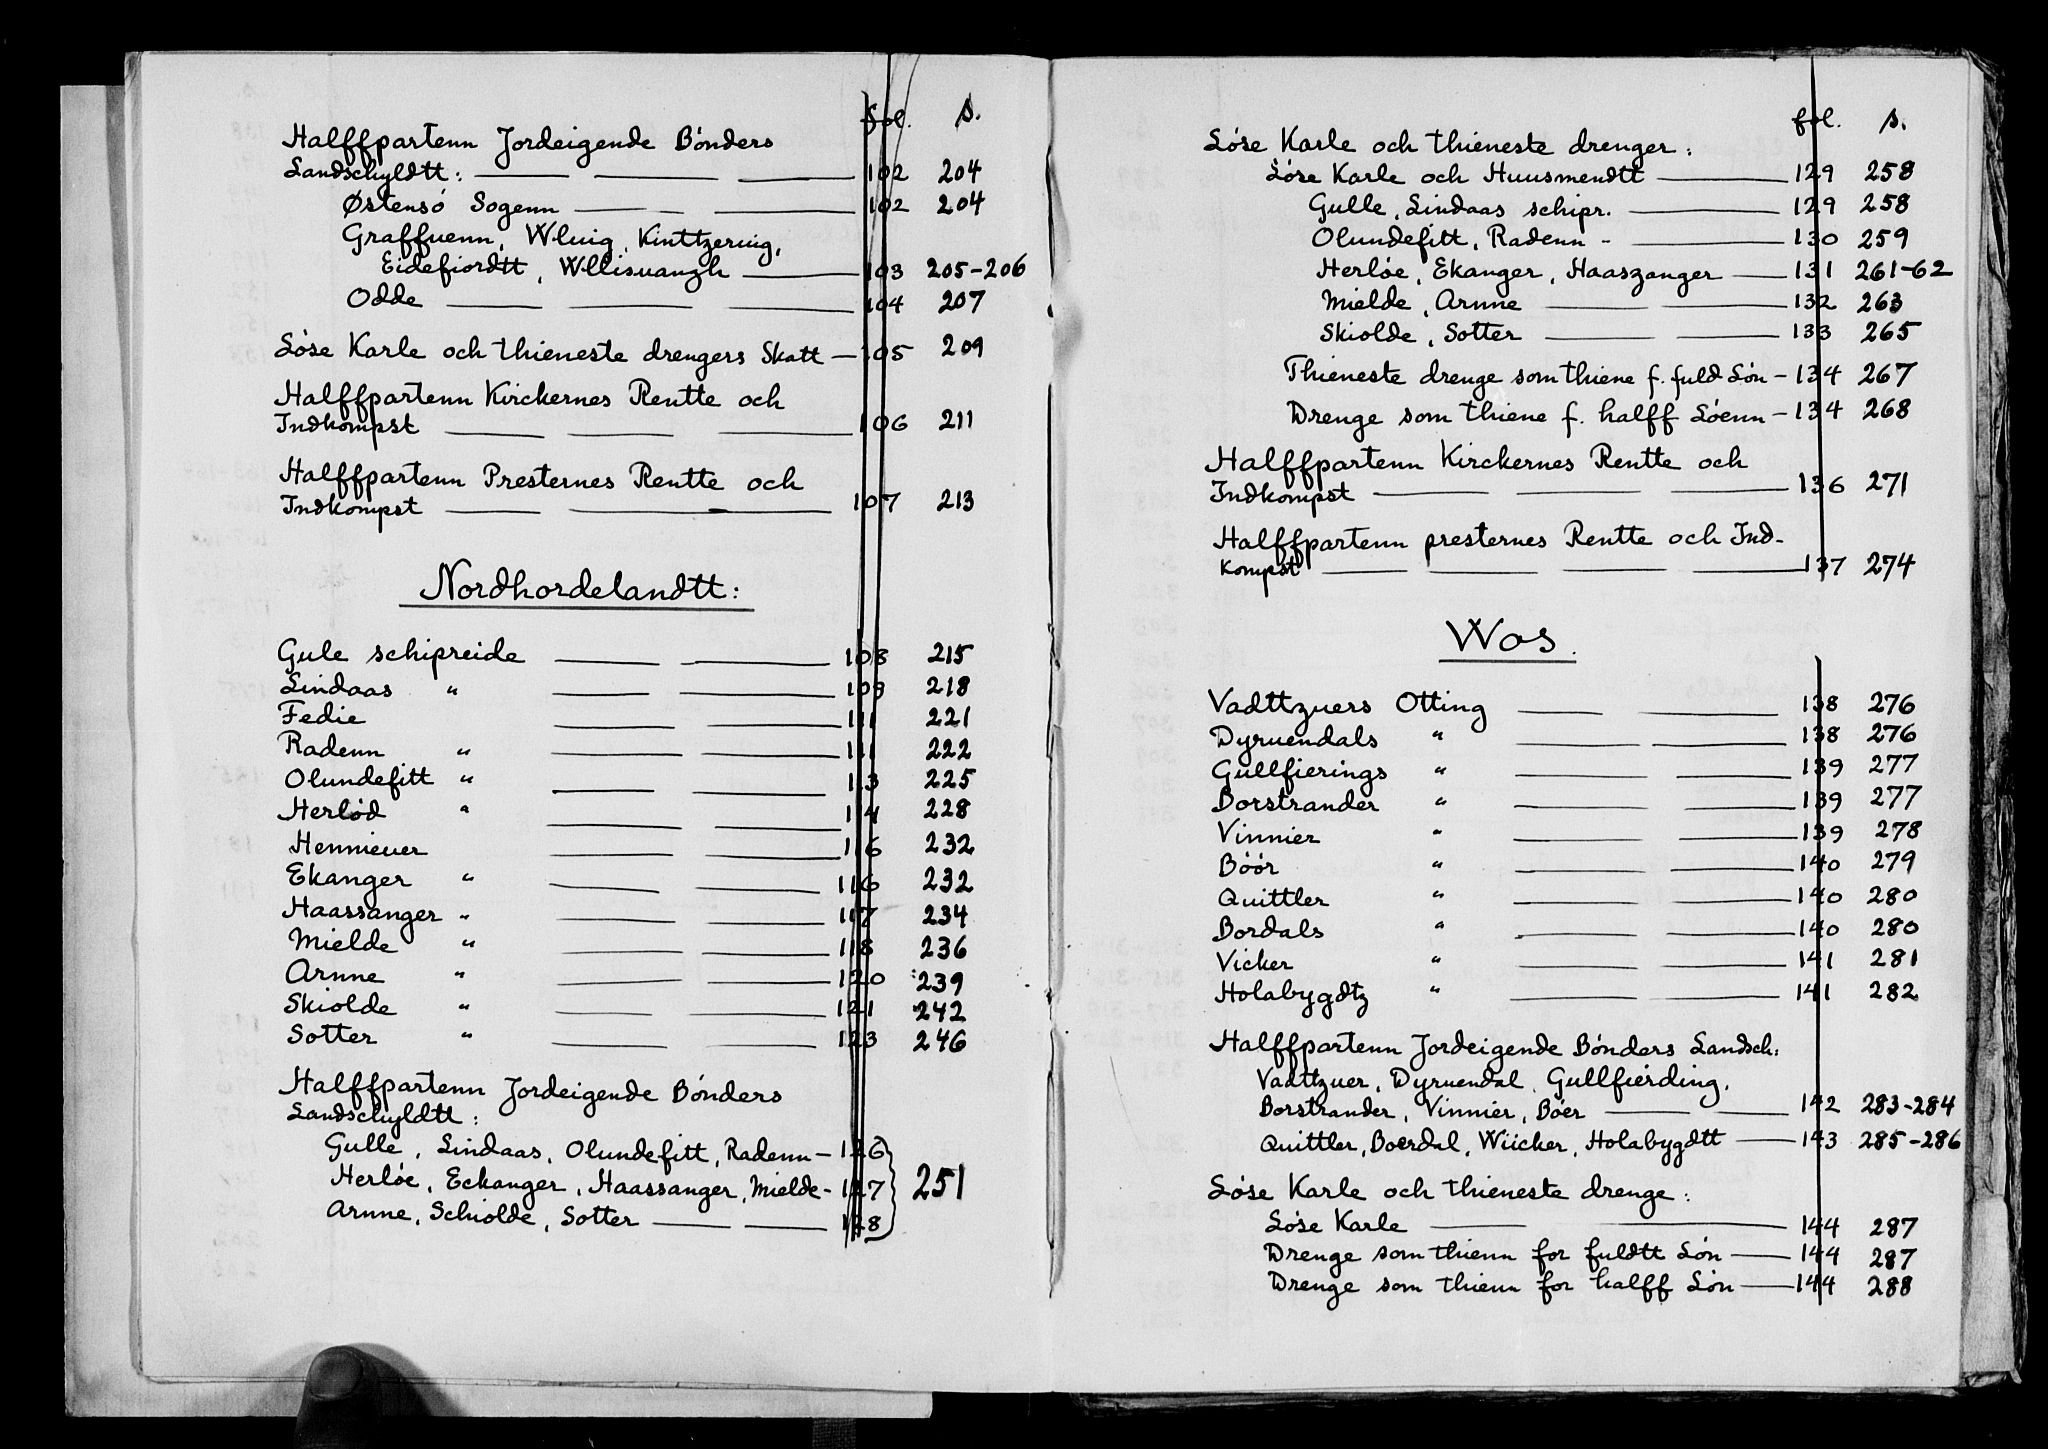 fol. s.
Halffpartenn Jordeigende Bønders
Landschyldtt: 102 204
Østensø Sogenn 102 204
Graffuenn, Wluig, Kinttzeruig,
Eidefiordtt, Wllisuangh 103 205-206
Odde 104 207
Løse Karle och thieneste drengers Skatt 105 209
Halffpartenn Kirckernes Rentte och
Indkompst 106 211
Halffpartenn Presternes Rentte och
Indkompst 107 213
Nordhordelandtt:
Gule schipreide 108 215
Lindaas " 109 218
Fedie 111 221
Radenn " 111 222
Olundefitt " 113 225
Herlød " 114 228
Hennieuer 116 232
Ekanger " 116 232
Haassanger " 117 234
Mielde " 118 236
Arnne " 120 239
Skiolde " 121 242
Sotter " 123 246
Halffpartenn Jordeigende Bønders
Landschyldtt:
Gulle, Lindaas, Olundefitt, Radenn 126
Herløe, Eckanger, Haassanger, Mielde 127 251
Arnne, Schiolde, Sotter 128
fol. s.
Løse Karle och thieneste drenger:
Løse Karle och Huusmendtt 129 258
Gulle, Lindaas schipr. 129 258
Olundefitt, Radenn 130 259
Herløe, Ekanger, Haaszanger 131 261-62
Mielde, Arnne 132 263
Skiolde, Sotter 133 265
Thieneste drenge som thiene f. fuld Løn 134 267
Drenge som thiene f. halff Løenn 134 268
Halffpartenn Kirckernes Rentte och
Indkompst 136 271
Halffpartenn presternes Rentte och Ind-
kompst 137 274
Wos.
Vadttzuers Otting 138 276
Dyruendals " 138 276
Gullfierings " 139 277
Borstrander " 139 277
Vinnier " 139 278
Bøør " 140 279
Quittler " 140 280
Bordals " 140 280
Vicker " 141 281
Holabygdtz " 141 282
Halffpartenn Jordeigende Bønders Landsch:
Vadttzuer, Dyruendal, Gullfierding,
Borstrander, Vinnier, Bøer 142 283-284
Quittler, Boerdal, Wiicker, Holabygdtt 143 285-286
Løse Karle och thieneste drenge:
Løse Karle 144 287
Drenge som thienn for fuldtt Løn 144 287
Drenge som thienn for halff Løn 144 288